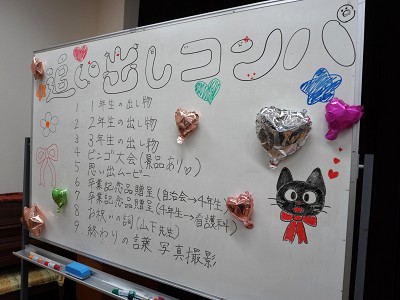 追い出しコンパ
1. 1年生の出し物
2. 2年生の出し物
3. 3年生の出し物
4 ビンゴ大会(景品あり♡)
5 思い出ムービー
6 卒業記念品贈呈(自治会→4年生)
7 卒業記念品贈呈(4年生→看護科)
8 お祝いの詞(山下先生)
9 終わりの言葉 写真撮影